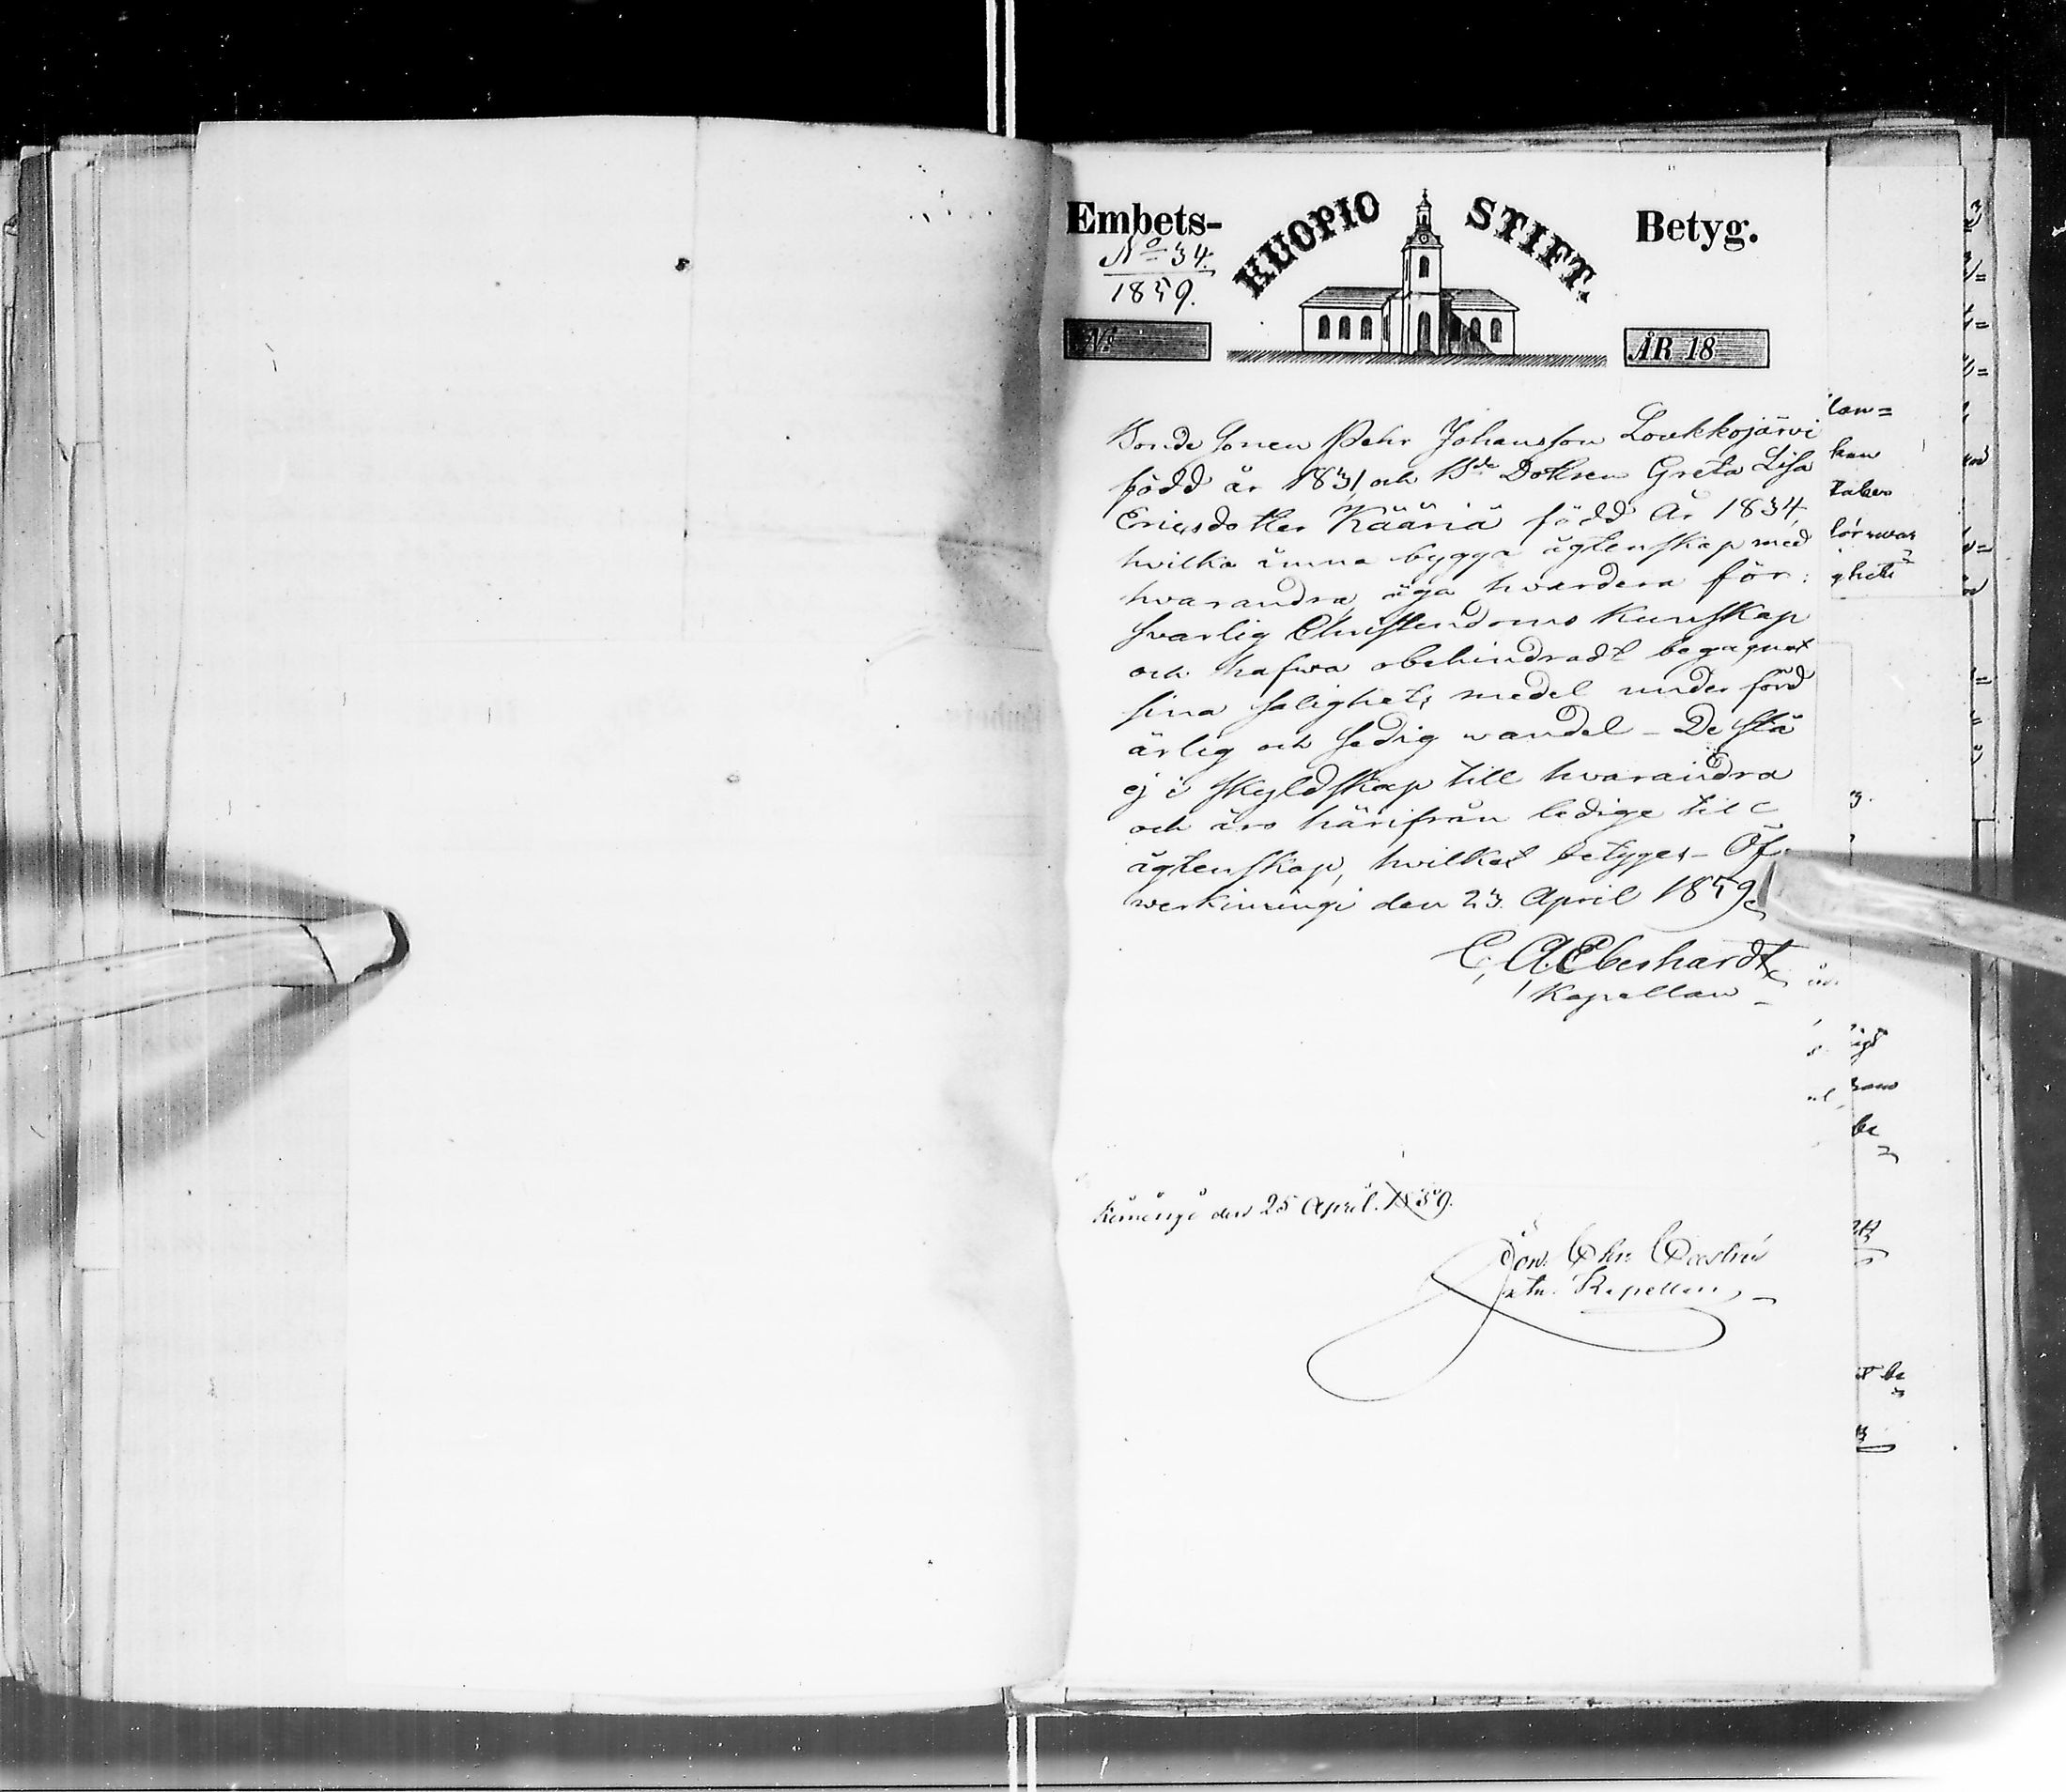 Embets- KUOPIO STIFT. Betyg.
No 34.
1859.
No
ÅR 18
Bonde Sonen Pehr Johansson Loukkojärvi
född år 1831 och Bde Dottren Greta Lisa
Ericsdotter Kääriä född År 1834,
hvilka ämna bygga ägtenskap med
hvarandra, äga hvardera för:
svarlig Christendoms Kunskap
och hafwa obehindradt begagnat
sina salighets medel under förd
ärlig och sedig wandel - De stå
ej i Skyldskap till hvarandra
och äro härifrån ledige till
ägtenskap, hvilket betyges - Öf
werkiminge den 23. April 1859.
C. A. Eberhardt
Kapellan
Kiminge den 25 April. 1859.
Kapellan